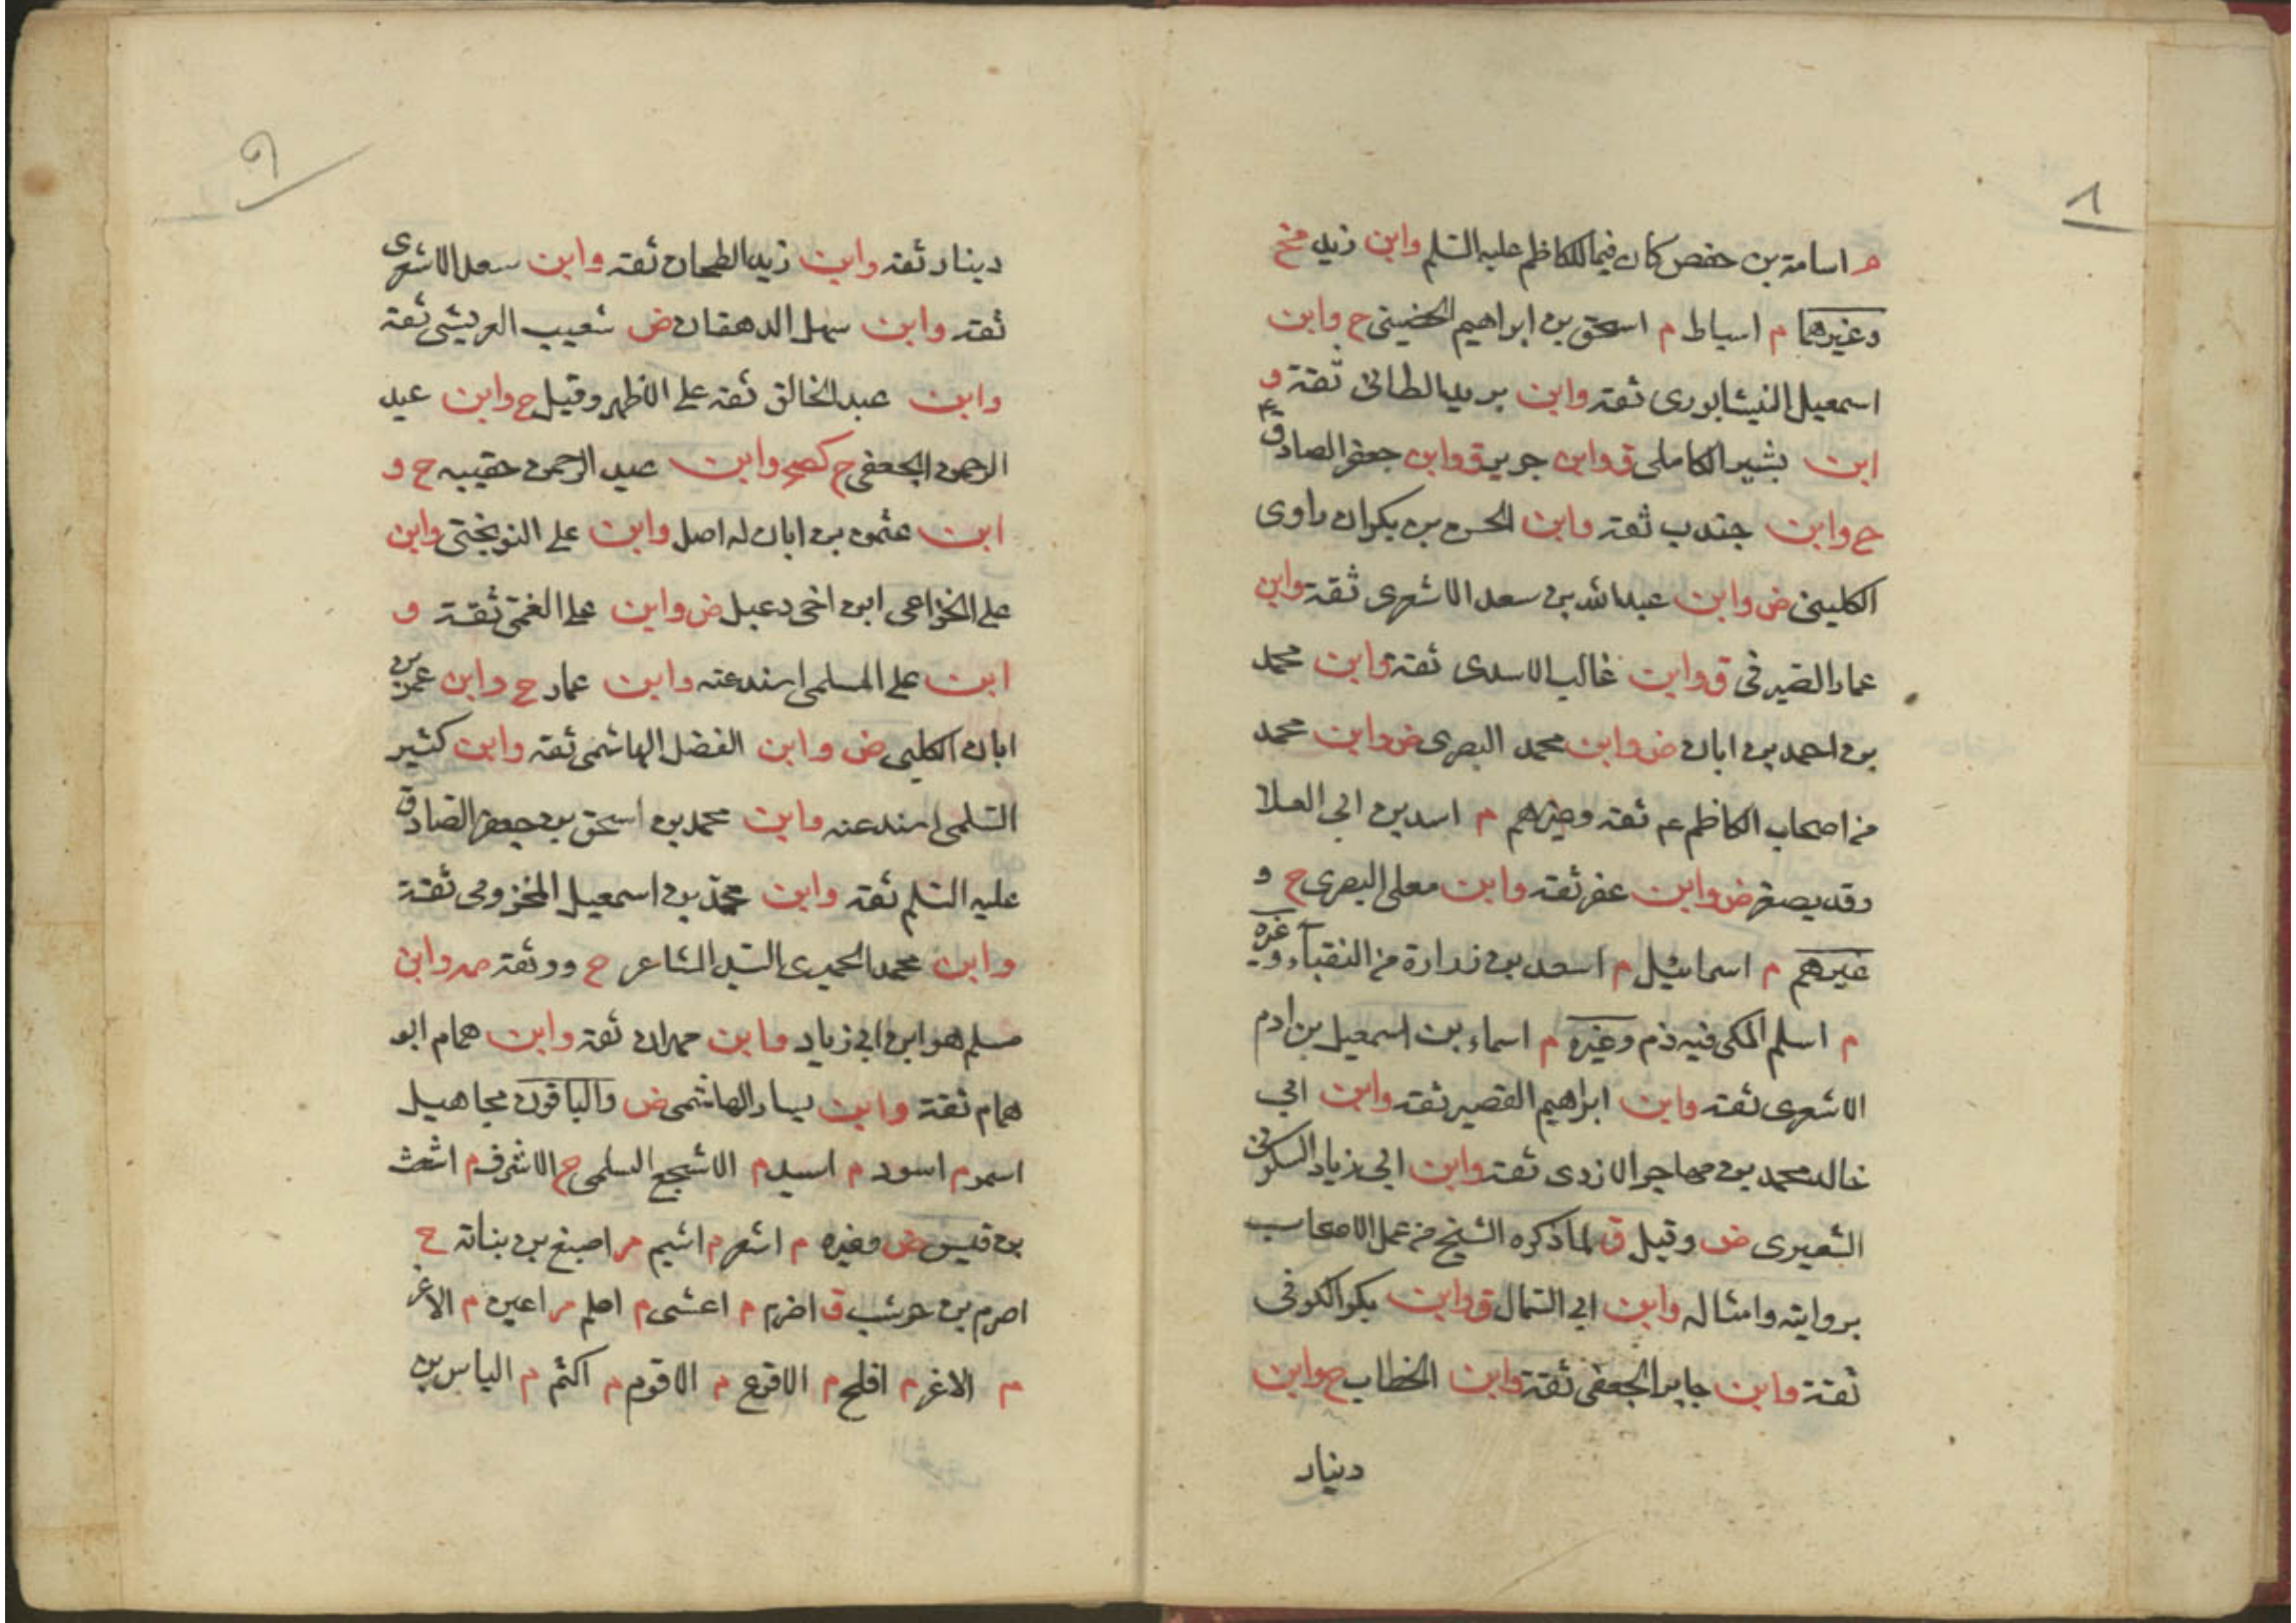 ٨
م اسامة بن حفص كان فيما للكاظم عليه السلم وابن زيد مخ
وغيرهما م اسباط م اسحق بن ابراهيم الحضيني ح وابن
اسمعيل النيشابورى ثقة وابن بريد الطائى ثقة و
ابن بشير الكاملى ق وابن جرير ق وابن جعفر الصادق
ح وابن جندب ثقة وابن الحسن بن بكران راوى
الكلينى ض وابن عبد الله بن سعد الاشعرى ثقة وابن
عمار الصيرفى ق وابن غالب الاسدى ثقة وابن محمد
بن احمد بن ابان ض وابن محمد البصرى ض وابن محمد
من اصحاب الكاظم عم ثقة وغيرهم م اسد بن ابى العلا
وقد يصغر ض وابن عفر ثقة وابن معلى البصرى ح و
غيرهم م اسمائيل م اسعد بن زرارة من النقبآء وغيره
م اسلم المكى فيه ذم وغيره م اسماء بن اسمعيل بن ادم
الاشعرى ثقة وابن ابراهيم القصير ثقة وابن ابى
خالد محمد بن مهاجر الازدى ثقة وابن ابى زياد السكونى
الشعيرى ض وقيل ق لما ذكره الشيخ من عمل الاصحاب
بروايته وامثاله وابن ابى السمال ق وابن بكر الكوفى
ثقة وابن جابر الجعفى ثقة وابن الخطاب ح وابن
دينار
٩
دينار ثقة وابن زيد الطحان ثقة وابن سعد الاشعرى
ثقة وابن سهل الدهقان ض شعيب العريشى ثقة
وابن عبد الخالق ثقة على الاظهر وقيل ح وابن عبد
الرحمن الجعفى ح وابن عبد الرحمن حقيبه ح و
ابن عثمن بن ابان له اصل وابن على النوبختى وابن
على الخزاعى ابن اخى دعبل ض وابن على العمى ثقة و
ابن على المسلمى اسند عنه وابن عمار ح وابن عمر بن
ابان الكلبى ض وابن الفضل الهاشمى ثقة وابن كثير
السلمى اسند عنه وابن محمد بن اسحق بن جعفر الصادق
عليه السلم ثقة وابن محمد بن اسمعيل المخزومى ثقة
وابن محمد الحميرى السيد الشاعر ح ووثقة صه وابن
مسلم هو ابن ابى زياد وابن مهران ثقة وابن همام ابو
همام ثقة وابن يسار الهاشمى ض والباقون مجاهيل
اسمر م اسود م اسيد م الاشجع السلمى ح الاشرف م اشعث
بن قيس ض وغيره م اشعر م اشيم م اصبغ بن بناتة ح
اصرم بن حوشب ق اضرم م اعشى م اعلم م اعين م الاغر
م الاغر م افلح م الاقرع م الاقوم م اكثم م الياس بن